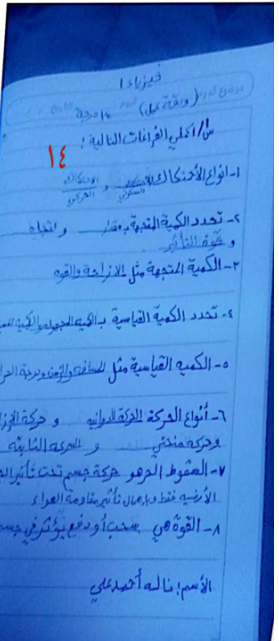 فيزياء ١
(ورقة عمل) ١٤ درجة
س١/ أكملي الفراغات التالية:
١٤
١- أنواع الأحتكاك الاحتكاك السكوني و الاحتكاك الحركي
٢- تحدد الكمية المتجهة بمقدار و اتجاه
و
٣- الكمية المتجهة مثل الازاحة والقوه
٤- تحدد الكمية القياسية بـ
٥- الكميه القياسية مثل المسافه والزمن ودرجة
٦- أنواع الحركة الحركة الدورانيه و حركة
وحركه منحنى و السرعه الثابته
٧- السقوط الحر هو حركة جسم تحت تأثير
الأرضيه فقط وبإهمال تأثير مقاومة الهواء
٨- القوة هي سحب أو دفع يؤثر في جسم
الأسم: أحمد علي